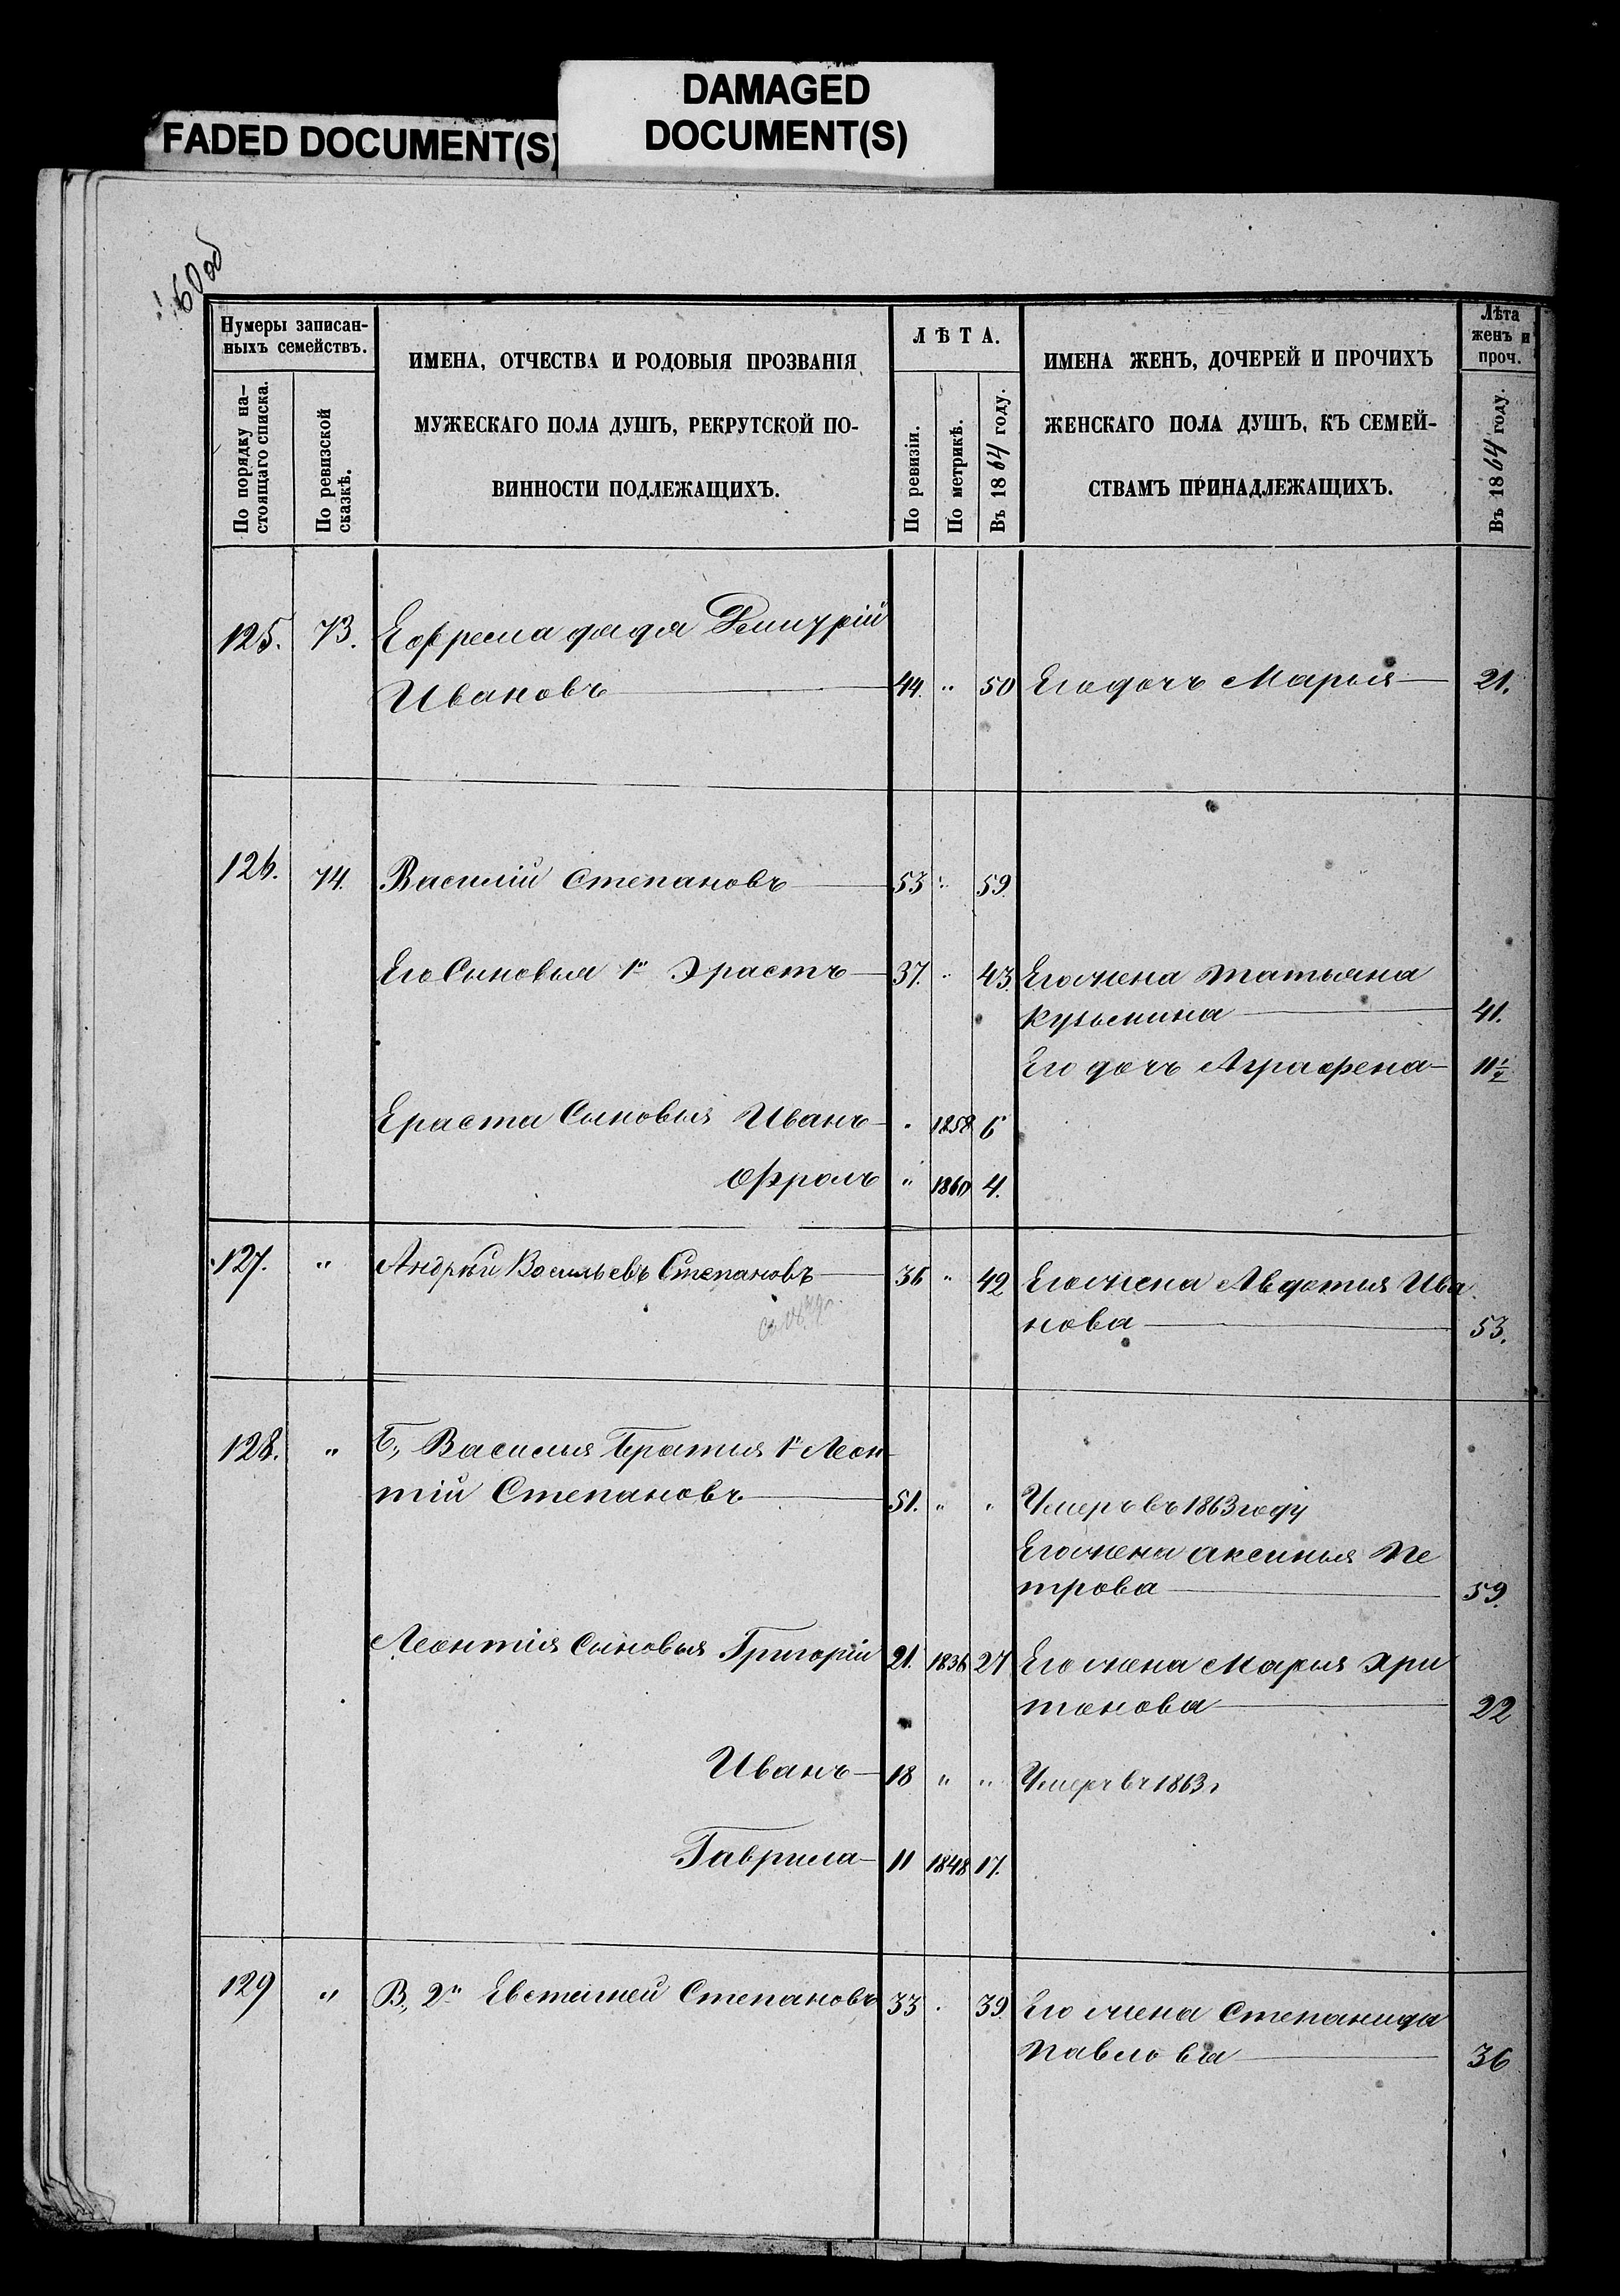 FADED DOCUMENT(S)
DAMAGED
DOCUMENT(S)
60 об
Нумеры записан-
ныхъ семействъ.
По порядку на-
стоящаго списка.
По ревизской
сказкѣ.
ИМЕНА, ОТЧЕСТВА И РОДОВЫЯ ПРОЗВАНІЯ
МУЖЕСКАГО ПОЛА ДУШЪ, РЕКРУТСКОЙ ПО-
ВИННОСТИ ПОДЛЕЖАЩИХЪ.
ЛѢТА.
По ревизіи.
По метрикѣ.
Въ 1864 году.
ИМЕНА ЖЕНЪ, ДОЧЕРЕЙ И ПРОЧИХЪ
ЖЕНСКАГО ПОЛА ДУШЪ, КЪ СЕМЕЙ-
СТВАМЪ ПРИНАДЛЕЖАЩИХЪ.
Лѣта
женъ и
проч.
Въ 1864 году.
125. 73. Ефрема дядя Дмитрій
Ивановъ 44. " 50 Его дочь Марья 21.
126. 74. Василій Степановъ 53 " 59.
Его Сыновья 1й Эрастъ 37. " 43. Его жена Татьяна
Кузьмина 41.
Его дочь Аграфена 11 1/2
Ераста Сыновья Иванъ " 1858 6
Фролъ " 1860 4.
127. " Андрѣй Васильевъ Степановъ 36 " 42 Его жена Авдотья Ива
нова 53.
128. " Б., Василья Братья 1й Леон-
тій Степановъ 51. " " Умеръ въ 1863 году
Его жена Аксинья Пе
трова 59.
Леонтія Сыновья Григорій 21. 1836 27 Его жена Марья Хри
тонова 22
Иванъ 18 " " Умеръ въ 1863 г
Гаврила 11 1848 17.
129 " В., 2й Евстигней Степановъ 33 " 39. Его жена Степанида
Павлова 36